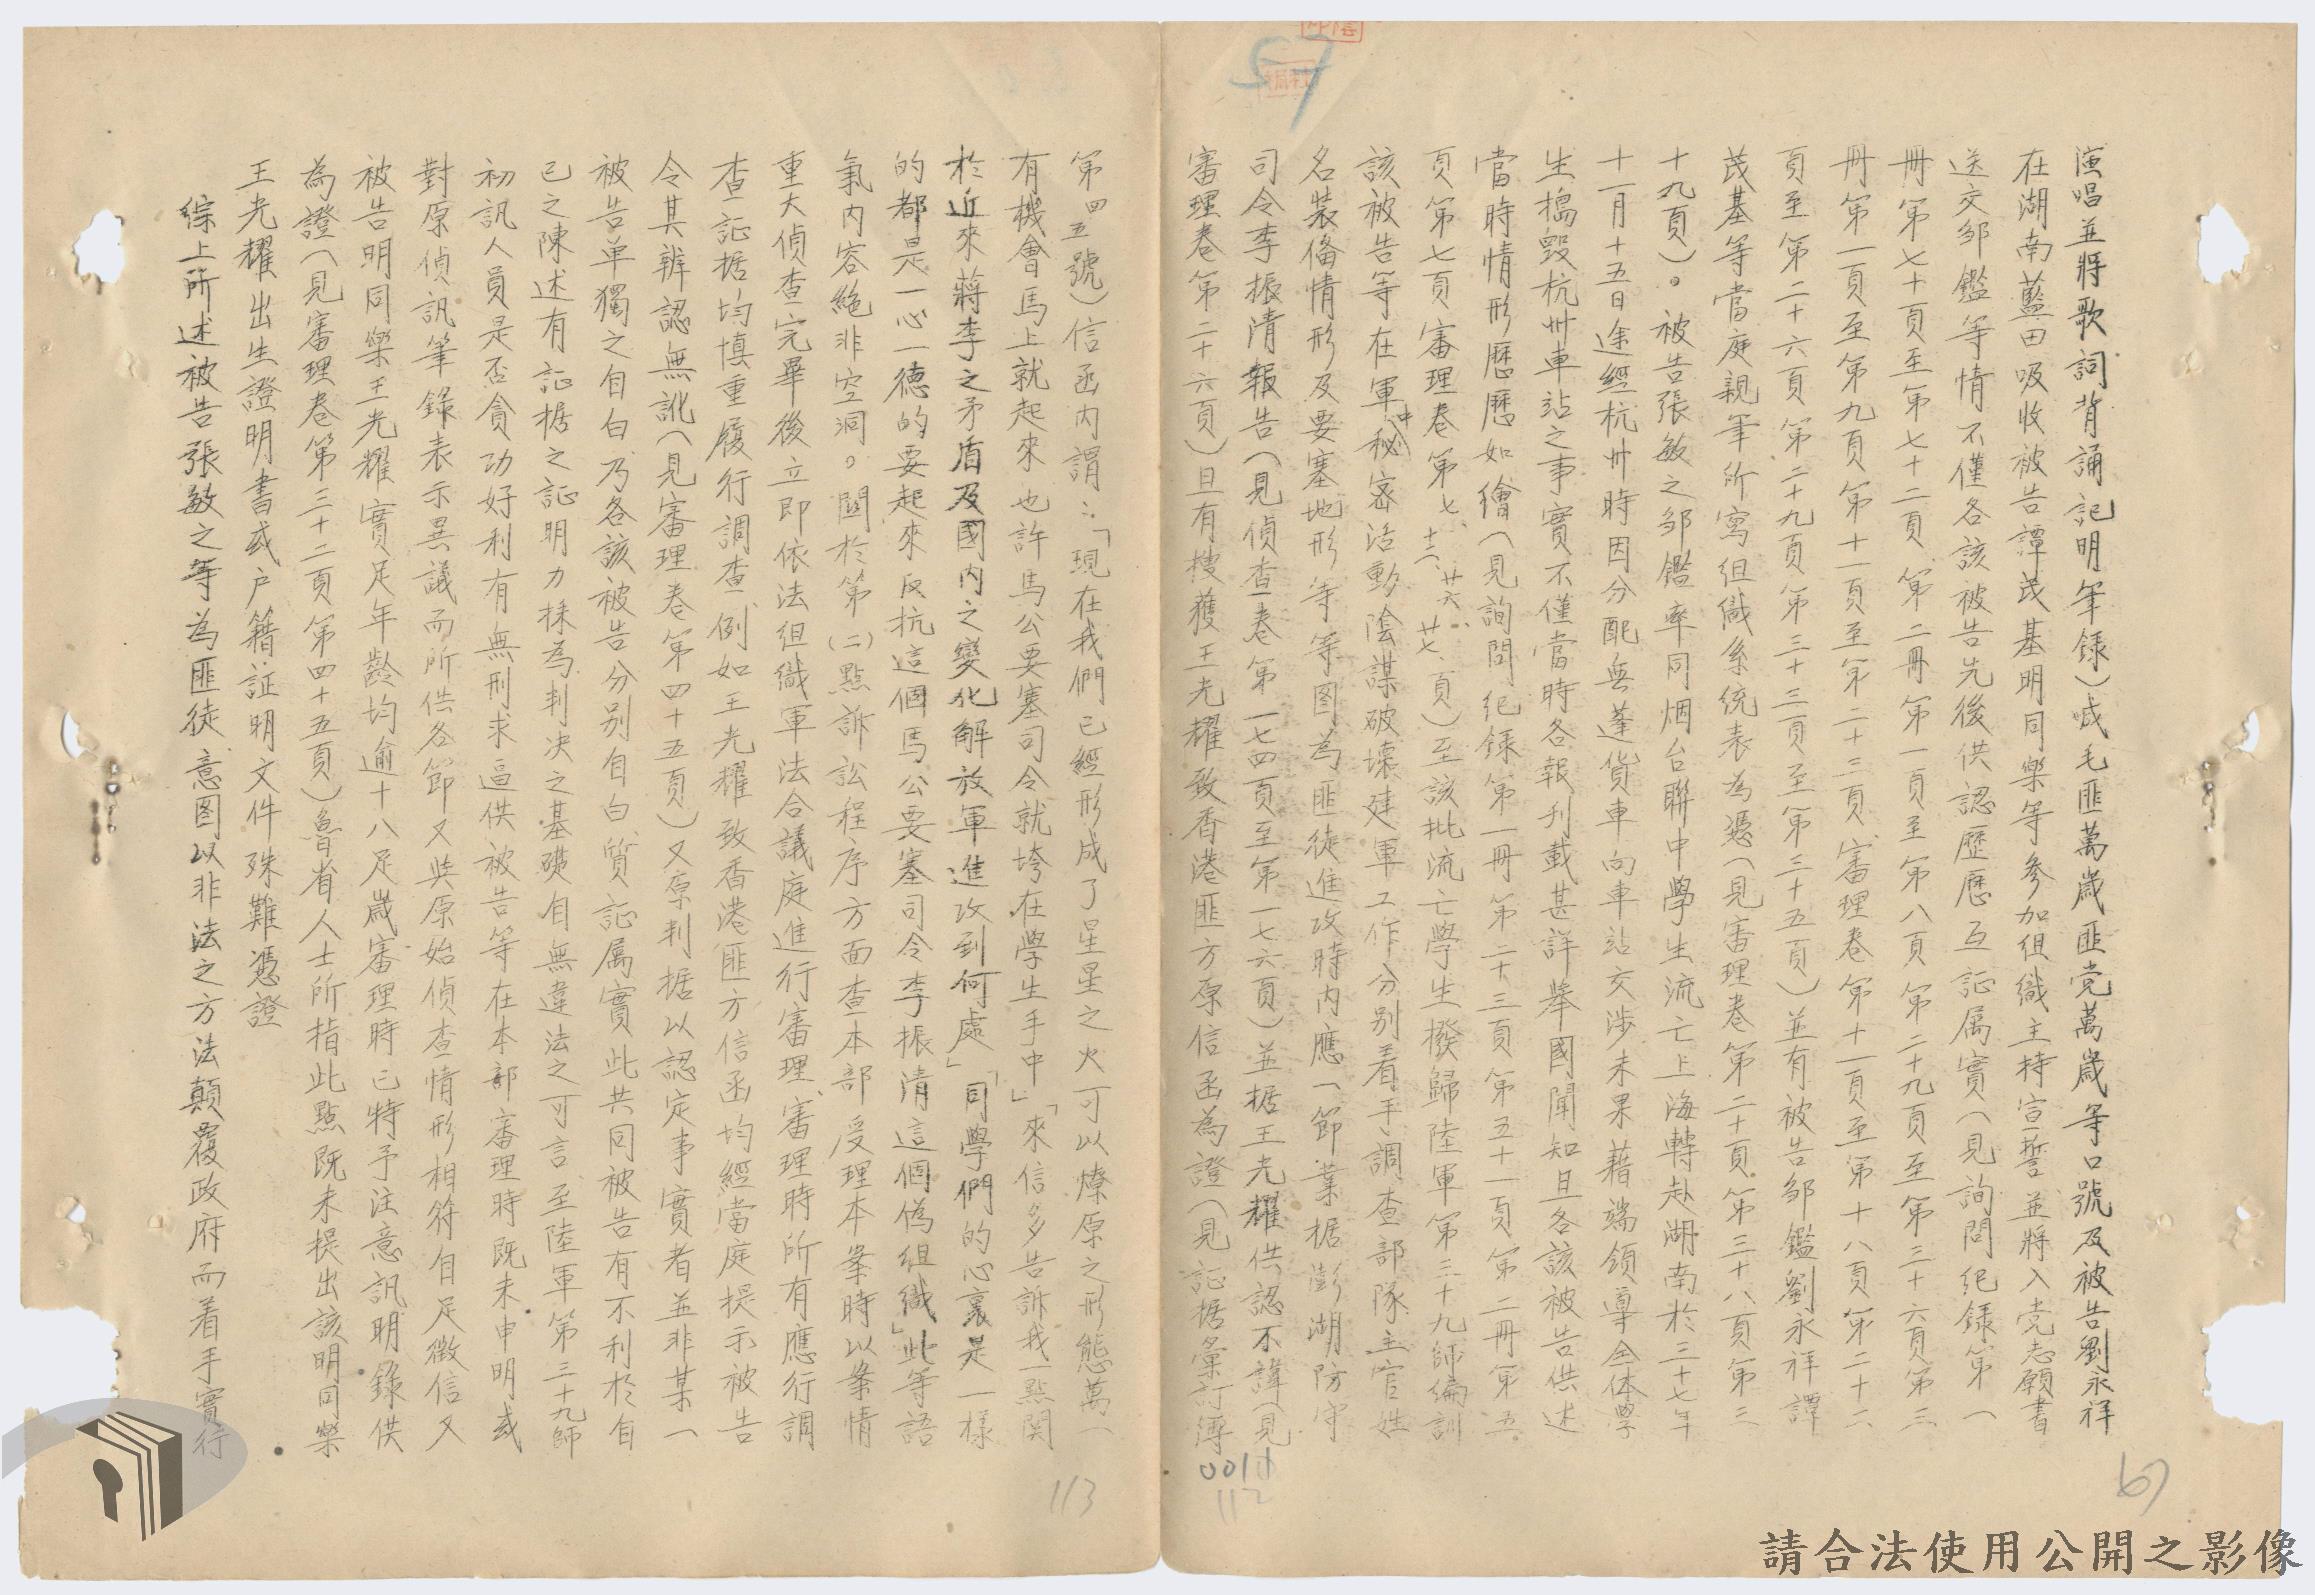 演唱並將歌詞背誦記明筆錄)喊毛匪萬歲匪党萬歲等口號及被告劉永祥
在湖南藍田吸收被告譚茂基明同樂等參加組織主持宣誓並將入党志願書
送交邹鑑等情不僅各該被告先後供認歷歷互証属實(見詢問紀録第一
冊第七十頁至第七十二頁、第二冊第一頁至第八頁第二十九頁至第三十六頁第三
冊第一頁至第九頁第十一頁至第二十三頁、審理卷第十一頁至第十八頁第二十二
頁至第二十六頁第二十九頁第三十三頁至第三十五頁)並有被告邹鑑劉永祥譚
茂基等當庭親筆所寫组織系統表為憑(見審理卷第二十頁第三十八頁第三
十九頁)。被告張敏之邹鑑率同烟台聯中學生流亡上海轉赴湖南於三十七年
十一月十五日途經杭州時因分配無蓬貨車向車站交涉未果藉端領導全体學
生搗毀杭州車站之事實不僅當時各報刊載甚詳舉國聞知且各該被告供述
當時情形歷歷如繪(見詢問紀録第一冊第二十三頁第五十一頁第二冊第五
頁第七頁審理卷第七、十六、廿六、廿七、頁)至該批流亡學生撥歸陸軍第三十九師編訓
該被告等在軍中秘密活動陰謀破壞建軍工作分别着手調查部隊主官姓
名裝備情形及要塞地形等等图為匪徒進攻時内應一節業据澎湖防守
司令李振清報告(見偵查卷第一七四頁至第一七六頁)並据王光耀供認不諱(見
審理卷第二十六頁)且有搜獲王光耀致香港匪方原信函為證(見証据彙訂簿
0011
112
67
第四五號)信函内謂:「現在我們已經形成了星星之火可以燎原之形態萬一
有機會馬上就起來也許馬公要塞司令就垮在學生手中」「來信多告訴我一點関
於近來蔣李之矛盾及國内之變化解放軍進攻到何處」「同學們的心裏是一樣
的都是一心一德的要起來反抗這個馬公要塞司令李振清這個偽组織」此等語
氣内容絶非空洞。関於第(二)點訴訟程序方面查本部受理本案時以案情
重大偵查完畢後立即依法组織軍法合議庭進行審理、審理時所有應行調
查証据均慎重履行調查、例如王光耀致香港匪方信函均經當庭提示被告
令其辨認無訛(見審理卷第四十五頁)又原判据以認定事實者並非某一
被告单獨之自白乃各該被告分别自白、質証属實此共同被告有不利於自
己之陳述有証据之証明力採為判決之基礎自無違法之可言至陸軍第三十九師
初訊人員是否貪功好利有無刑求逼供被告等在本部審理時既未申明或
對原偵訊筆錄表示異議而所供各節又與原始偵查情形相符自足徵信又
被告明同樂王光耀實足年齡均逾十八足歲審理時已特予注意訊明錄供
為證(見審理卷第三十二頁第四十五頁)魯省人士所指此點既未提出該明同樂
王光耀出生證明書或户籍証明文件殊難憑證
綜上所述被告張敏之等為匪徒意图以非法之方法顛覆政府而着手實行
113
請合法使用公開之影像